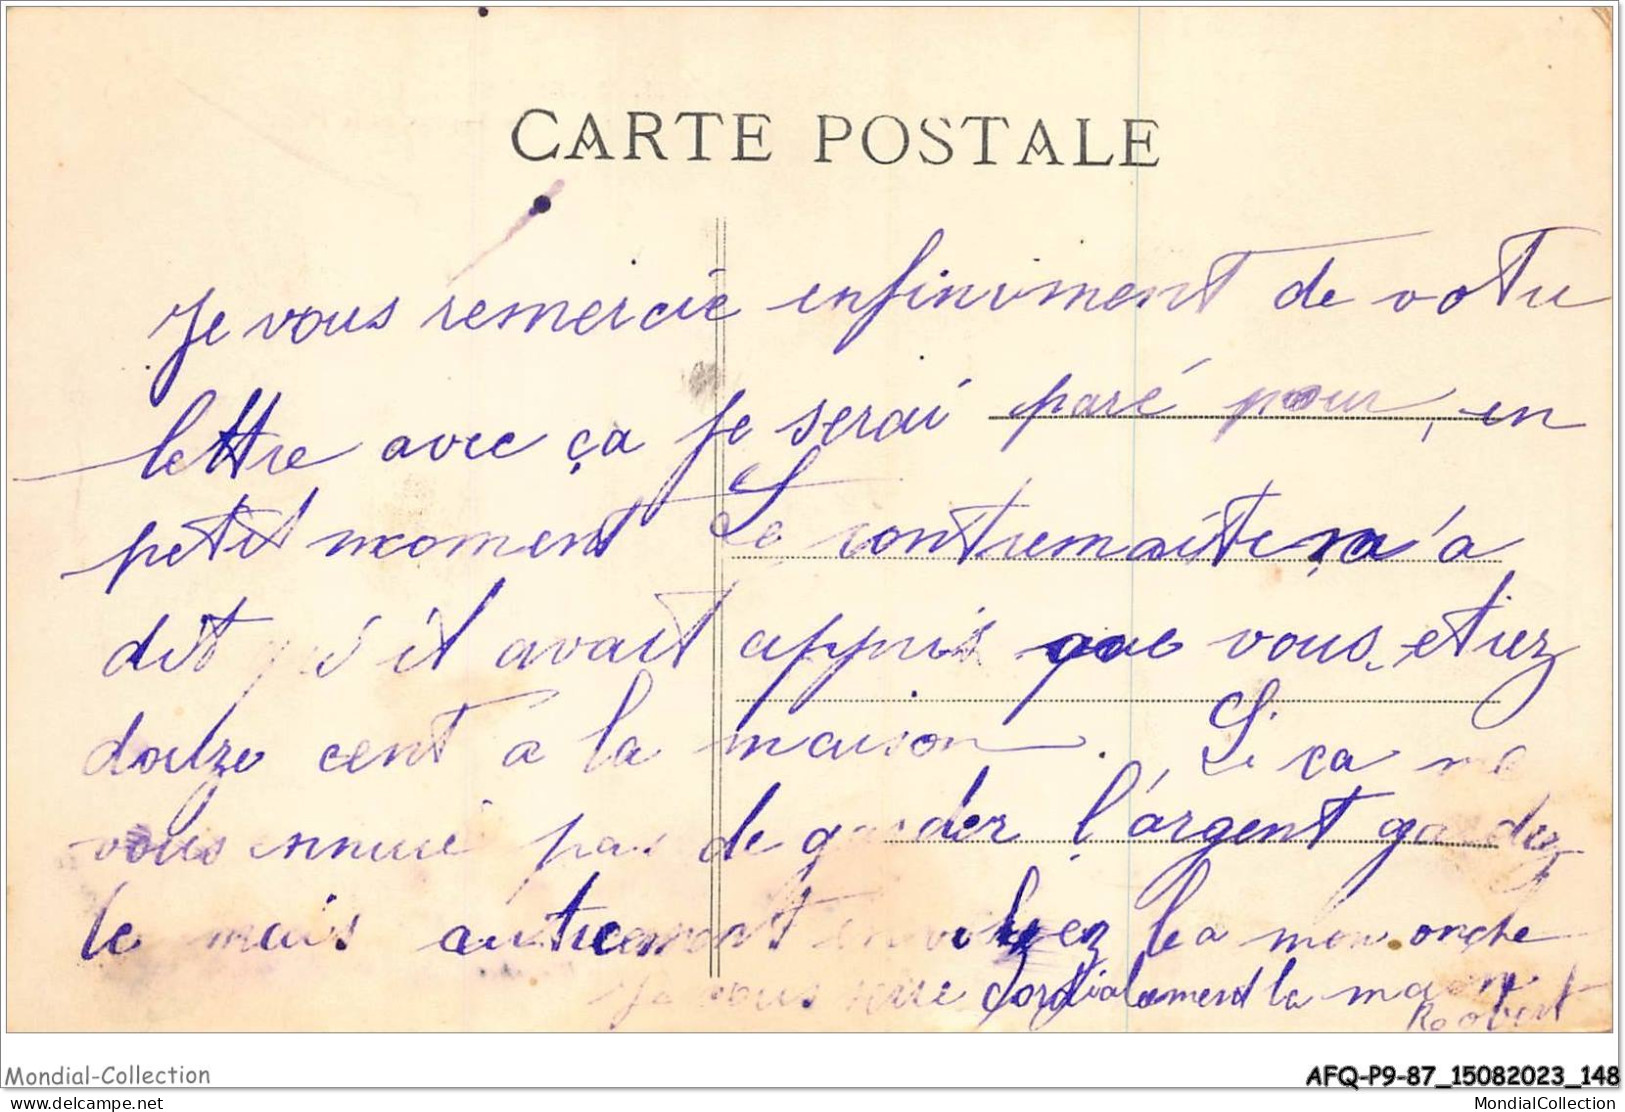 CARTE POSTALE
Je vous remercie enfiniment de votre
lettre avec ça je serai paré pour, en
petit moment Le contremaitre m'a
dit qu'il avait appris que vous etiez
doulze cent a la maison. Si ça ne
vous ennuie pas de garder l'argent gardez
le mais autrement envoyez le a mon oncle
Je vous serre cordialement la main
Roobert
Mondial-Collection
AFQ-P9-87_15082023_148
delcampe.net
MondialCollection